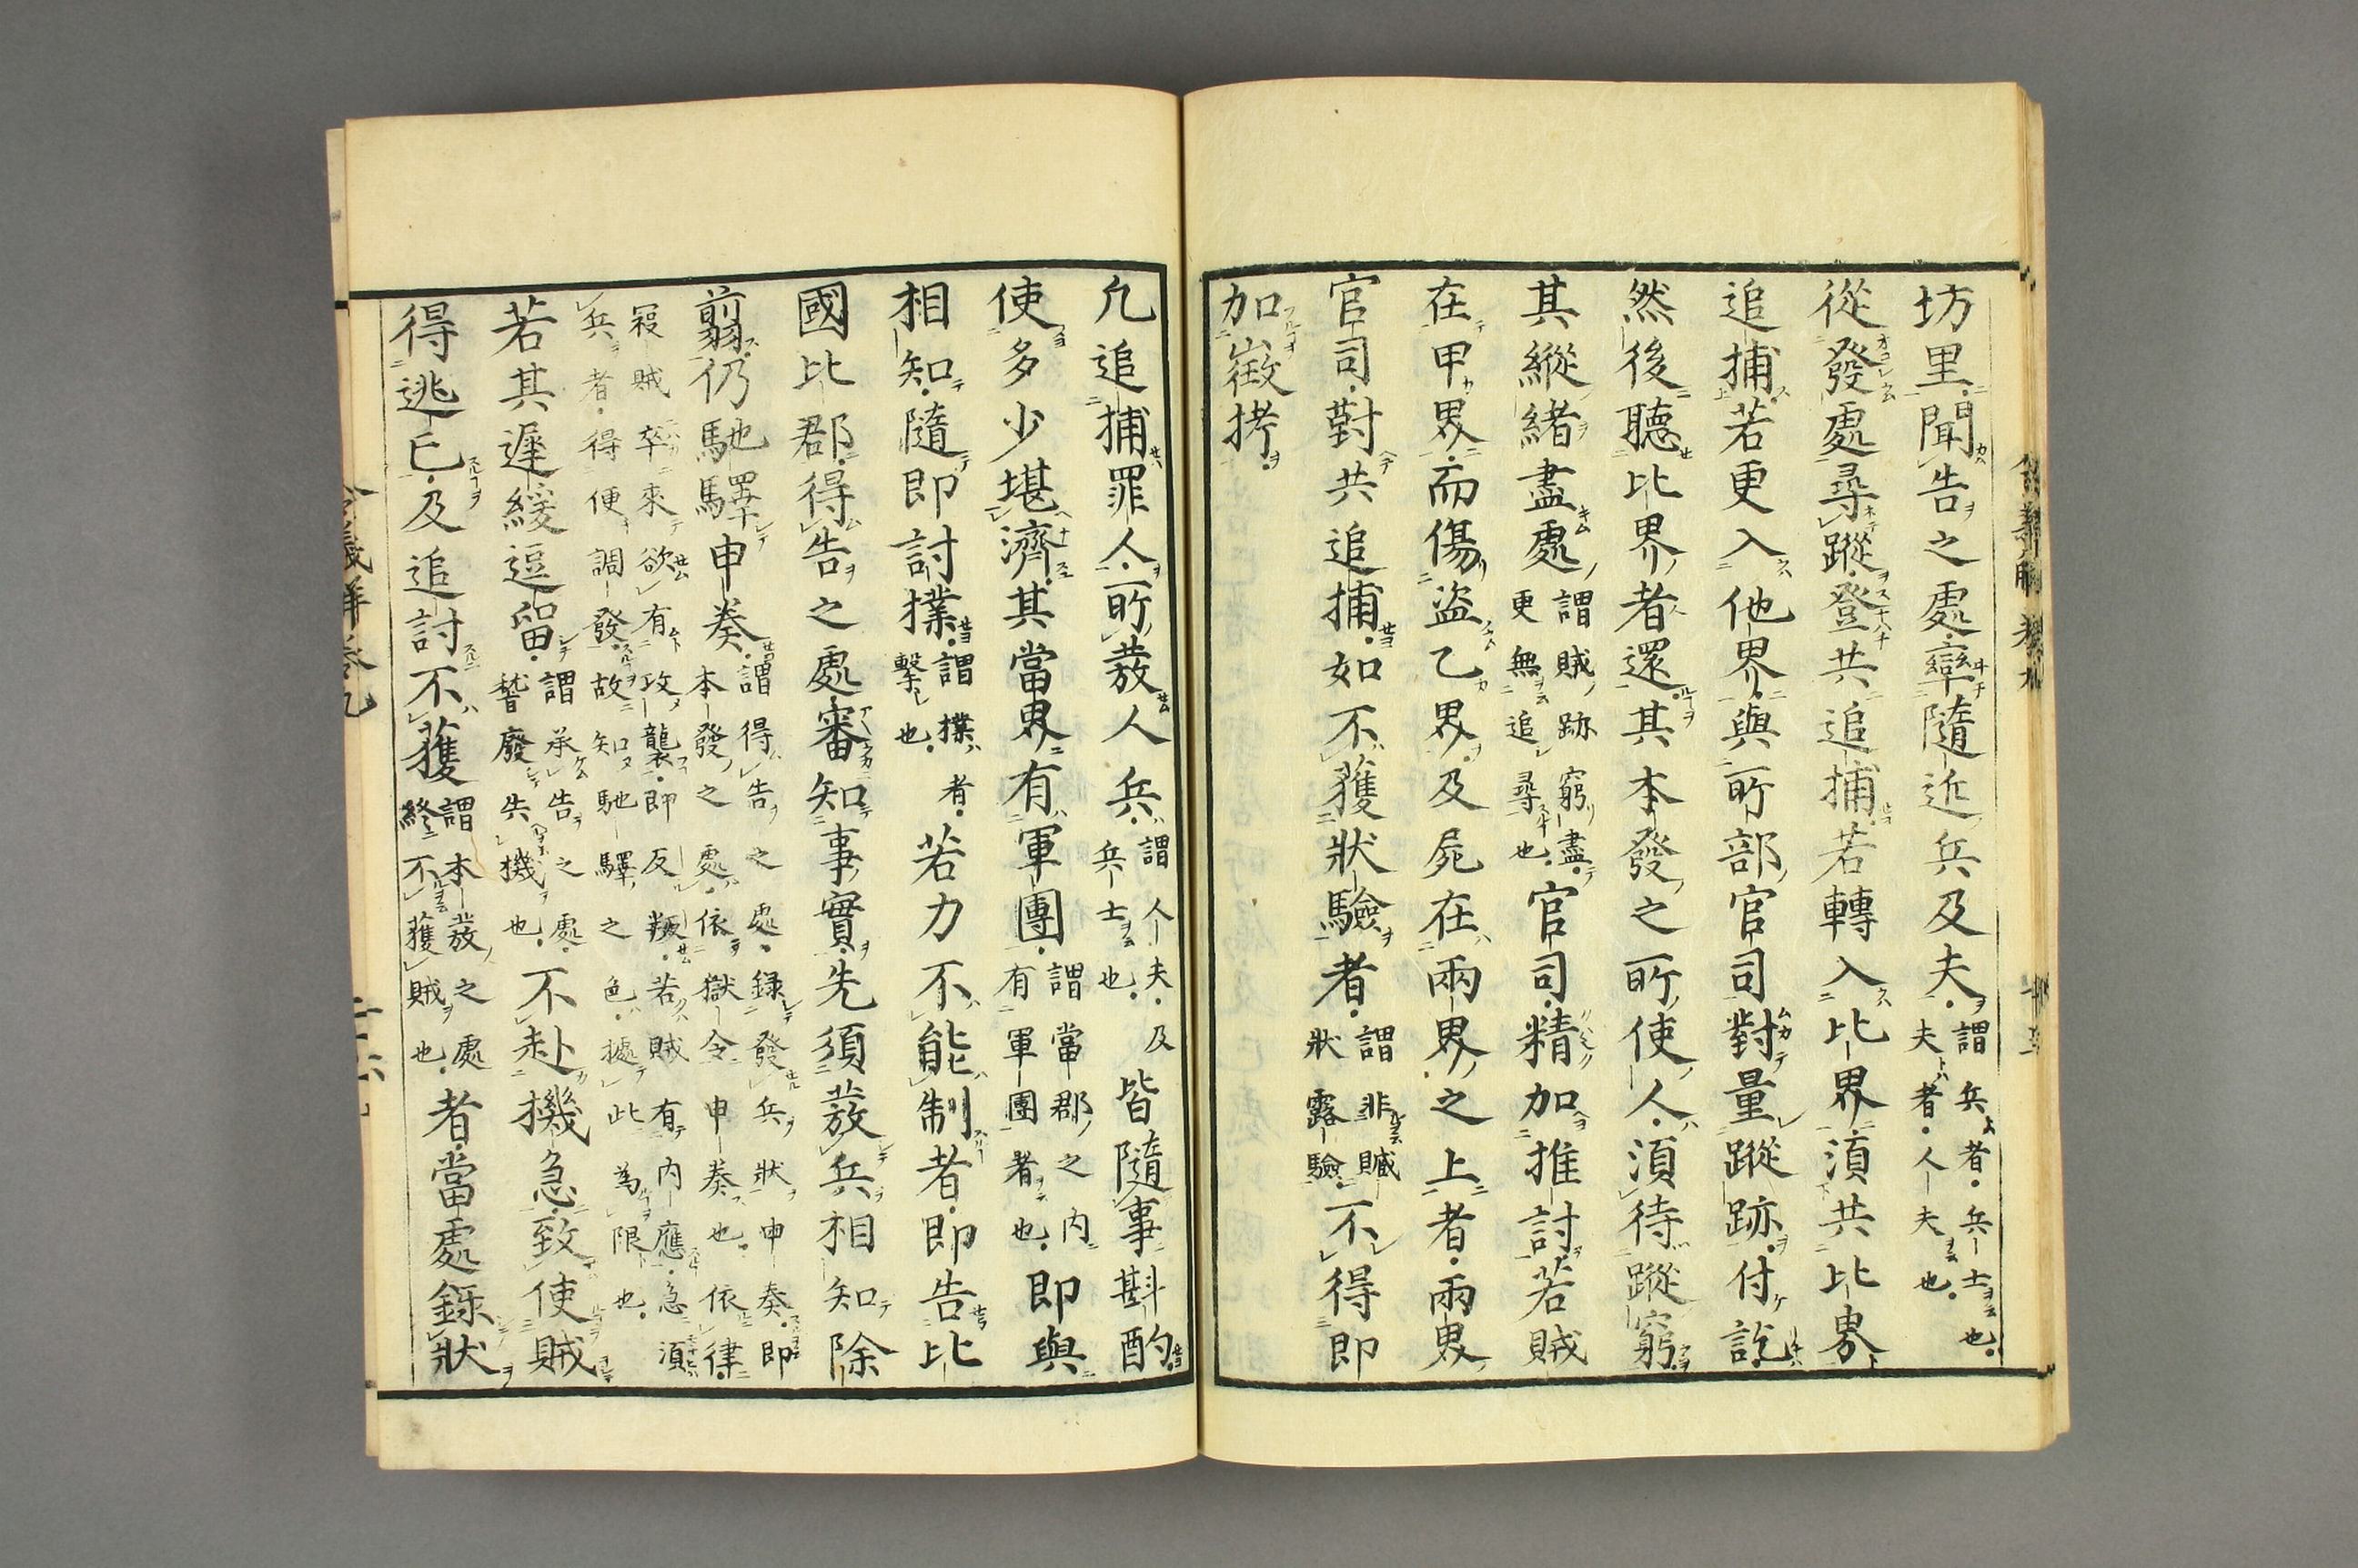 坊里聞告之處率隨近兵及夫謂兵者兵士也夫者人夫也
從發處尋蹤登共追捕若轉入比界須共比界
追捕若更入他界與所部官司對量蹤跡付訖
然後聽比界者還其本發之所使人須待蹤窮
其縱緒盡處謂賊跡窮盡更無追尋也官司精加推討若賊
在甲界而傷盜乙界及屍在兩界之上者兩界
官司對共追捕如不獲狀驗者謂非贓狀露驗不得即
加徵拷
凡追捕罪人所發人兵謂人夫及兵士也皆隨事斟酌
使多少堪濟其當界有軍團謂當郡之內有軍團者也即與
相知隨即討撲謂撲者擊也若力不能制者即告比
國比郡得告之處審知事實先須發兵相知除
翦仍馳驛申奏謂得告之處錄發兵狀申奏即本發之處依獄令申奏也依律
寇賊卒來欲有攻襲即反叛若賊有內應急須兵者得便調發故知馳驛之色據此為限也
若其遲緩逗留謂承告之處稽廢失機也不赴機急致使賊
得逃亡及追討不獲謂本發之處終不獲賊也者當處錄狀